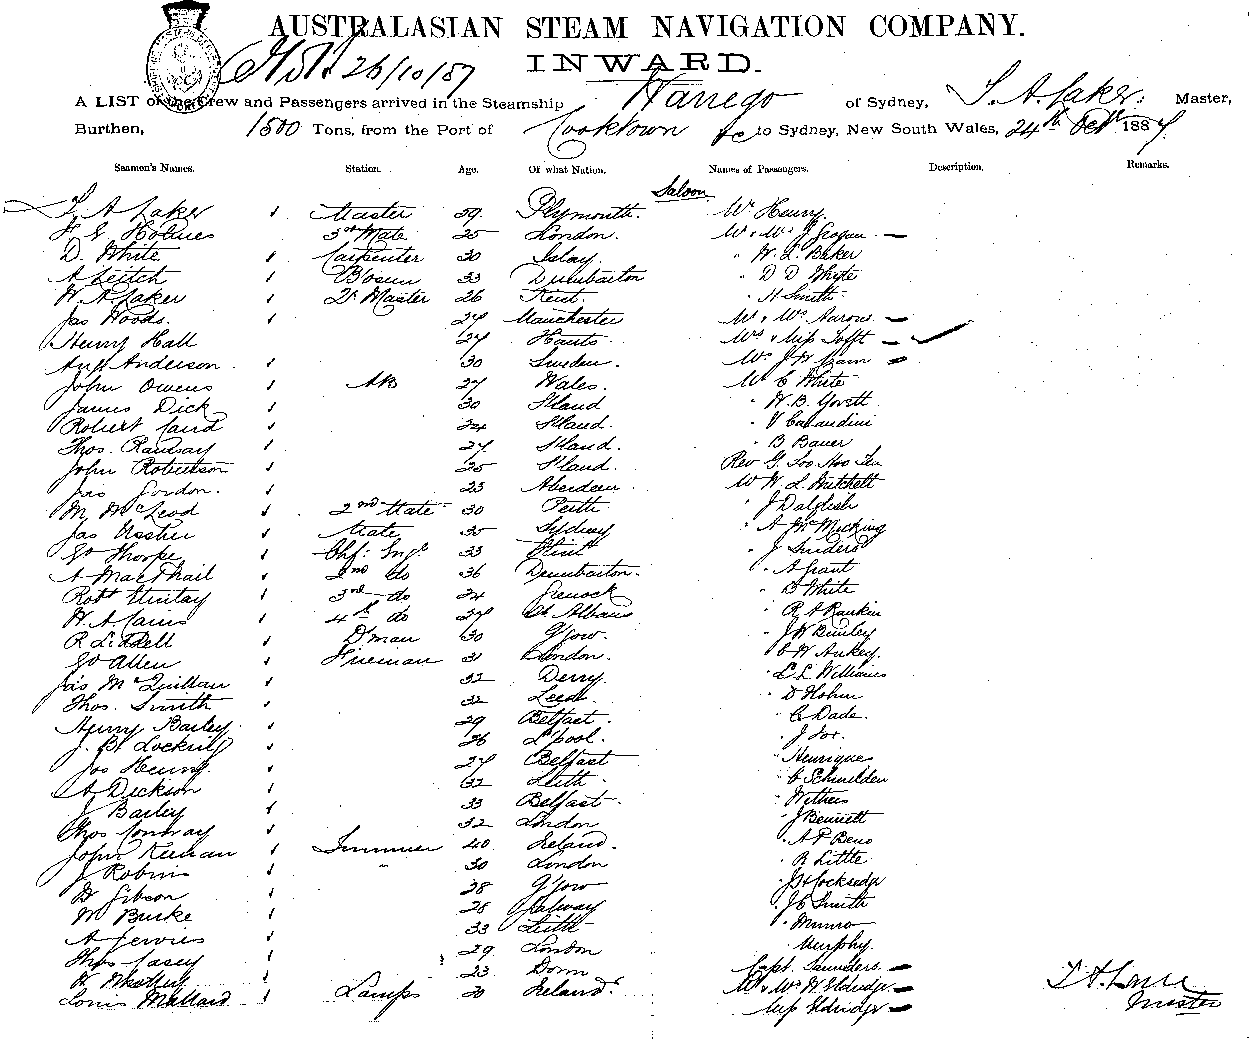 AUSTRALASIAN STEAM NAVIGATION COMPANY.
26/10/87
INWARD.
A LIST of the Crew and Passengers arrived in the Steamship Warrego of Sydney, T. A. Laker Master,
Burthen, 1500 Tons, from the Port of Cooktown &c to Sydney, New South Wales, 24th Octr 1887
Seamen's Names. Station. Age. Of what Nation. Names of Passengers. Description. Remarks.
Saloon
T A Laker Master 39 Plymouth Mr Henry
F G Holmes 3rd Mate 25 London Mr & Mrs J Grogan
D. White Carpenter 30 Islay " W. L. Baker
A Leitch Bosun 33 Dumbarton " D D Whyte
W. A. Laker 2nd Master 26 Kent " H Smith
Jas Woods 27 Manchester Mr & Mrs Aarons
Henry Hall 27 Hants Mrs & Miss Tofft
Aug Anderson 30 Sweden Mrs J W
John Owens AB 27 Wales Mr E White
James Dick 30 S'land " W. B.
Robert Laird 24 S'land " V Cavandini
Thos. Ramsay 27 S'land " B Bauer
John Robertson 25 S'land Rev G. Soo Hoo Ten
Jas Gordon 23 Aberdeen Mr W. L. Hutchell
M McLeod 2nd Mate 30 Perth " J Dalglish
Jas Ussher Mate 35 Sydney " A McMicking
Go Thorpe Chf: Engr 33 Flint " J Sinders
A MacPhail 2nd do 36 Dumbarton " A Grant
Robt Finlay 3rd do 24 Greenock " D White
W. A. James 4th do 27 St Albans " R A Rankin
R Liddell D'man 30 G'gow " J W Bewley
Go Allen Fireman 31 London " C W Ankey
Jas McQuillan 32 Derry " L L Williams
Thos. Smith 32 Leeds " D Holm
Henry Bailey 29 Belfast " C Dade
J. B. 26 L'pool " J Jor
Jas Heung 27 Belfast " Henrique
A Dickson 32 Leith " C Schnelden
J Bailey 33 Belfast " Withers
Thos Conway 32 London " J Bennett
John Keenan Trimmer 40 Ireland " A P Beno
J Robins " 30 London " R Little
W Gibson 28 G'gow " J H Cocksedge
M Burke 28 Galway " J C Smith
A Jervies 33 Leith " Munro
Thos Casey 29 London " Murphy
W 23 Capt. Saunders
Louis Mallard Lamps 30 Ireland Mr & Mrs W Eldridge
Miss Eldridge
T A. Laker
Master